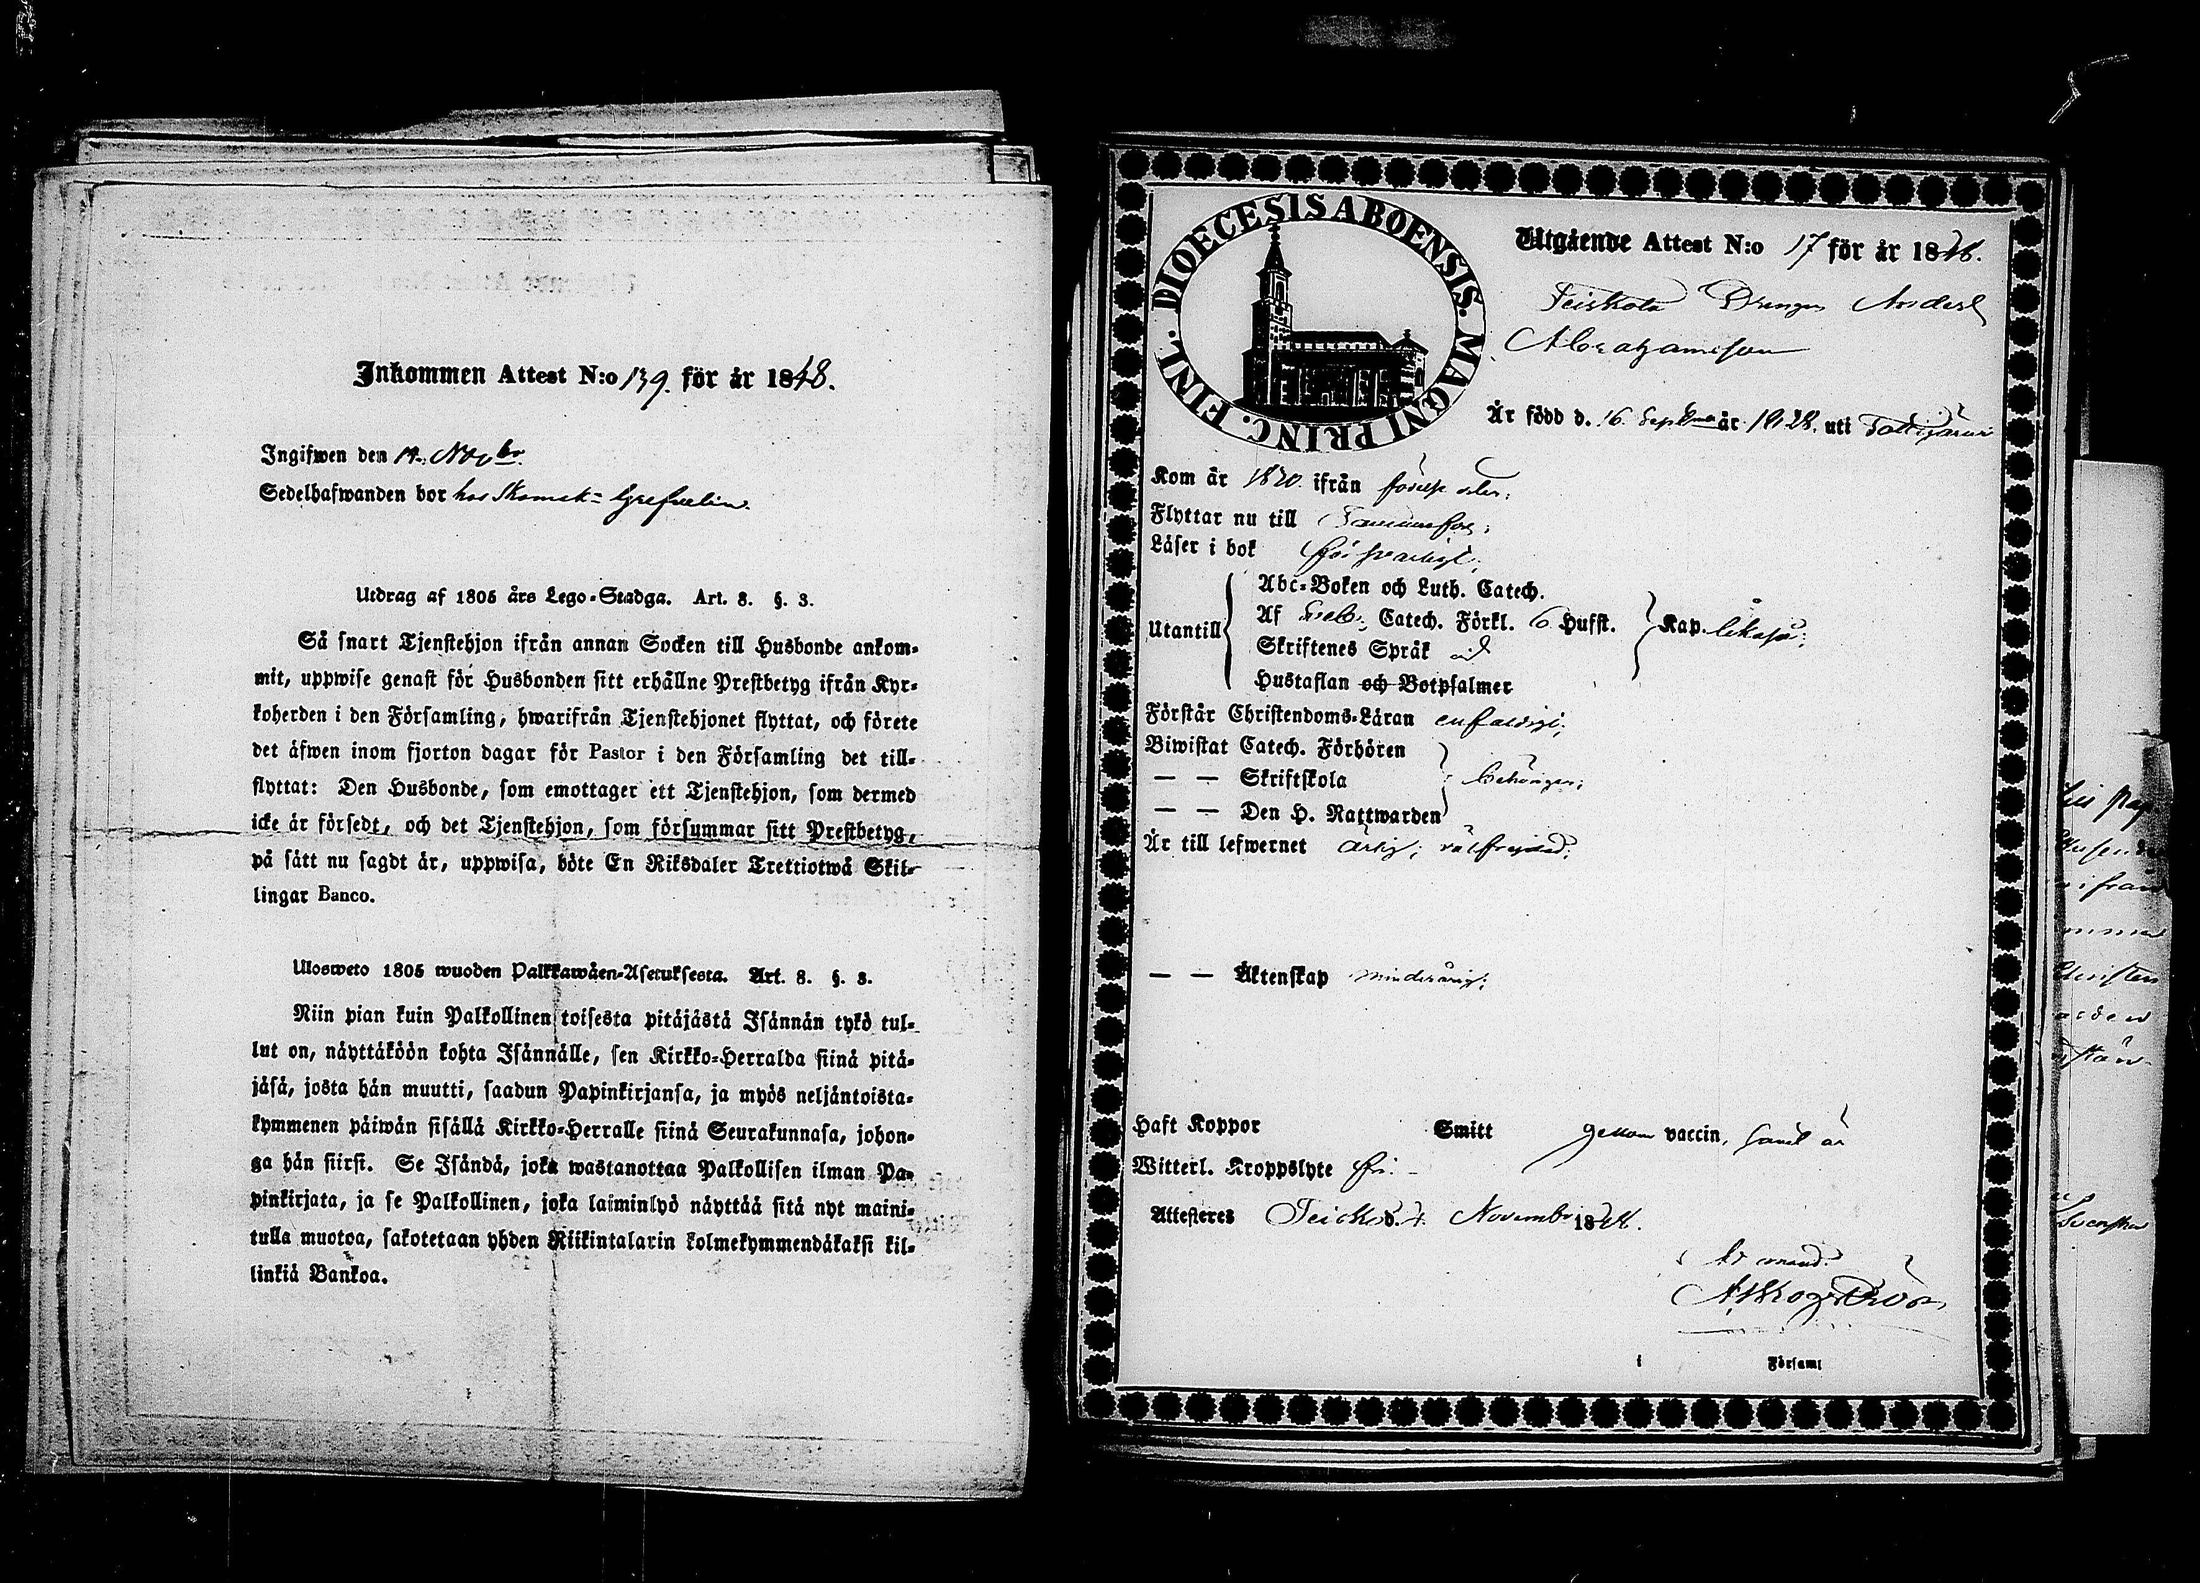 Inkommen Attest N:o 139. för år 1848.
Ingifwen den 19. Novbr.
Sedelhafwanden bor hos
Utdrag af 1805 års Lego-Stadga. Art. 8. §. 3.
Så snart Tjenstehjon ifrån annan Socken till Husbonde ankom-
mit, uppwise genast för Husbonden sitt erhållne Prestbetyg ifrån Kyr-
koherden i den Församling, hwarifrån Tjenstehjonet flyttat, och förete
det åfwen inom fjorton dagar för Pastor i den Församling det till-
flyttat: Den Husbonde, som emottager ett Tjenstehjon, som dermed
icke år försedt, och det Tjenstehjon, som försummar sitt Prestbetyg,
på sått nu sagdt år, uppwisa, böte En Riksdaler Trettiotwå Skil-
lingar Banco.
Ulosweto 1805 wuoden Palkkawåen-Asetuksesta. Art. 8. §. 3.
Niin pian kuin Palkollinen toisesta pitåjåstå Isånnån tykö tul-
lut on, nåyttåköön kohta Isånnålle, sen Kirkko-Herralda siinå pitå-
jåså, josta hån muutti, saadun Papinkirjansa, ja myös neljåntoista-
kymmenen påiwån sisållå Kirkko-Herralle siinå Seurakunnasa, johon-
ga hån siirsi. Se Isåndå, joka wastanottaa Palkollisen ilman Pa-
pinkirjata, ja se Palkollinen, joka laiminlyö nåyttåå sitå nyt maini-
tulla muotoa, sakotetaan yhden Riikintalarin kolmekymmendåkaksi kil-
linkiå Bankoa.
DIOECESIS ABOENSIS. MAGNI PRINC. FINL.
Utgående Attest N:o 17 för år 1848.
Teiskola Drengen Anders
Abrahamsson
Är född d. 16 Septemb. år 1828. uti
Kom år 1830 ifrån
Flyttar nu till Tammerfors;
Läser i bok försvarligt;
Abc-Boken och Luth. Catech.
Utantill Af Sveb. Catech. Förkl. 6 Hufst. Kap. likaså;
Skriftenes Språk
Hustaflan och Botpsalmer
Förstår Christendoms-Läran enfaldigt;
Biwistat Catech. Förhören
— — Skriftskola behörigen;
— — Den H. Nattwarden
Är till lefwernet ärlig; välfrejdad;
— — Äktenskap minderårig;
Haft Koppor Smitt genom vaccin, samt är
Witterl. Kroppslyte fri.
Attesteres Teiskola d. 7. Novembr 1848.
i Församl